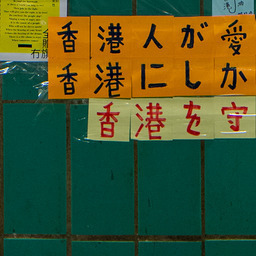 香港人が愛
香港にしか
香港を守